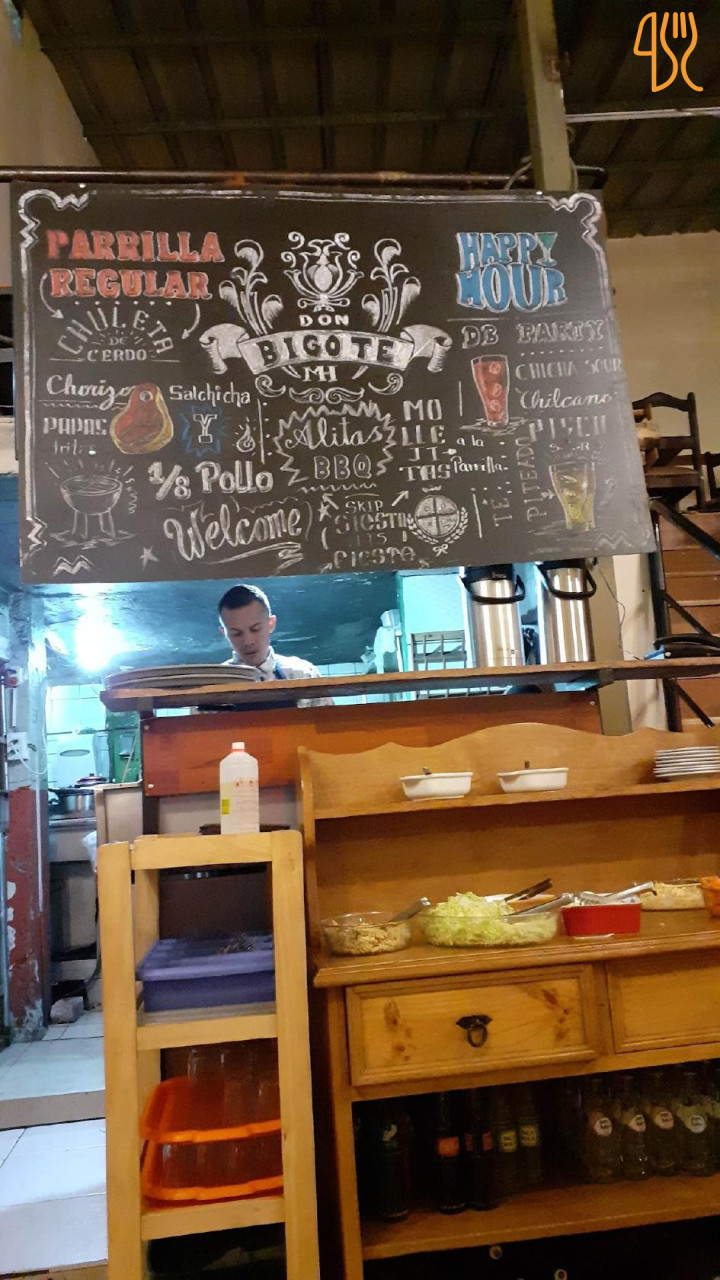 PARRILLA
REGULAR
CHULETA
DE
CERDO
Chorizo
Salchicha
PAPAS
fritas
Y
1/8 Pollo
Welcome
DON
BIGOTE
MH
Alitas
BBQ
MO
LLE
JI
TAS
a la
Parrilla
SKIP
SIESTA
LET'S
FIESTA
HAPPY
HOUR
DE PARTY
CHICHA SOUR
Chilcano
PISCO
SOUR
TÉ
PITEADO